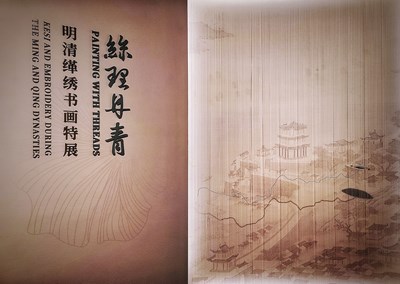 絲理丹青
PAINTING WITH THREADS
明清缂绣书画特展
KESI AND EMBROIDERY DURING
THE MING AND QING DYNASTIES